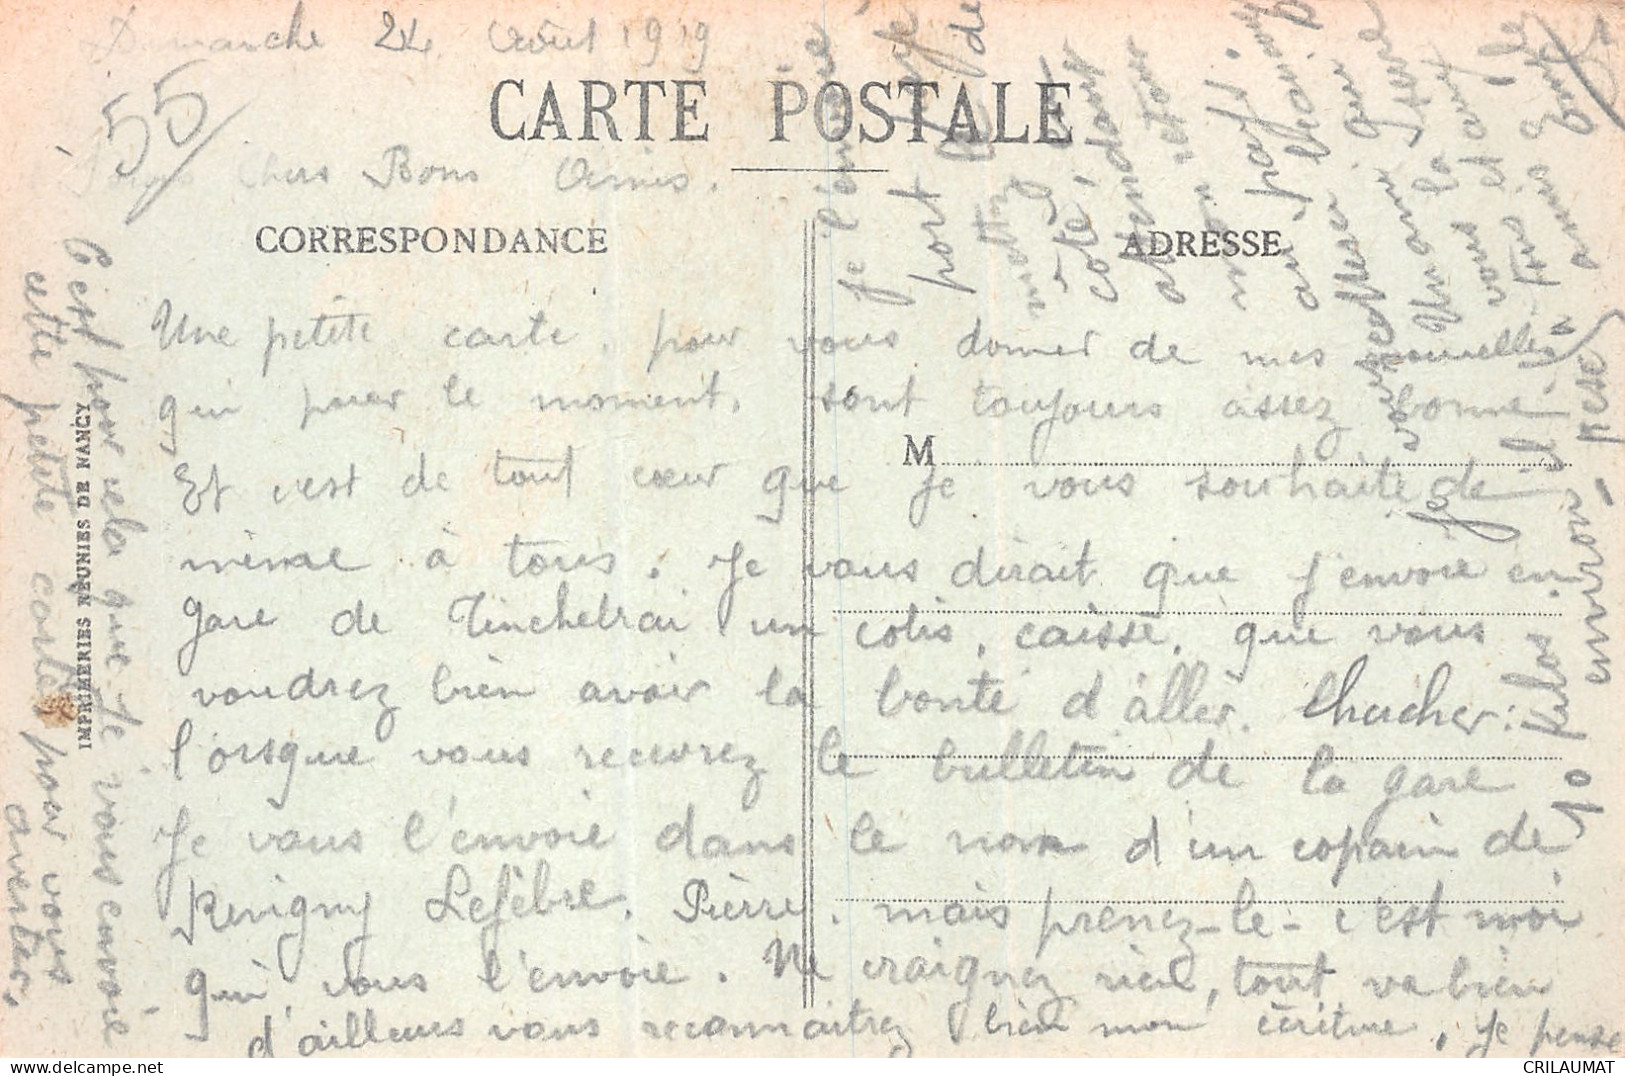 Dimanche 24 Août 1919
55
CARTE POSTALE
Chers Bons Amis.
CORRESPONDANCE
ADRESSE
M
Une petite carte, pour vous donner de mes nouvelles
qui pour le moment, sont toujours assez bonne
Et c'est de tout cœur que je vous souhaite de
même à tous. Je vous dirait que j'envoie en
gare de Tinchebrai un colis, caisse, que vous
voudrez bien avoir la bonté d'aller. Chercher:
lorsque vous recevrez le bulletin de la gare
Je vous l'envoie dans le nom d'un copain de
Revigny Lefèbre. Pierre. mais prenez-le- c'est moi
qui, vous l'envoie. Ne craignez rien, tout va bien
d'ailleurs vous reconnaitrez bien mon écriture, je pense
C'est pour cela que je vous envoie
cette petite carte pour vous
avertir.
IMPRIMERIES RÉUNIES DE NANCY
Je l'envoie
port
de
côté,
attendant
mon retour
au
qui
Un ami
vous et
tous
il
pèse
10 kilos environ
CRILAUMAT